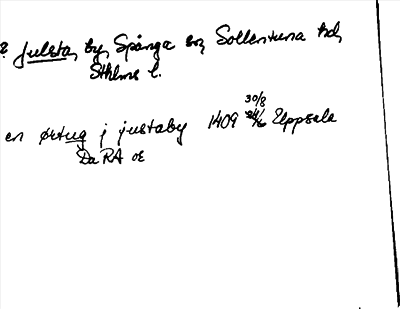 ? Julsta, by, Spånga sn, Sollentuna hd,
Sthlms l.
30/8
en ørtug j justaby 1409 Uppsala
Da RA oe